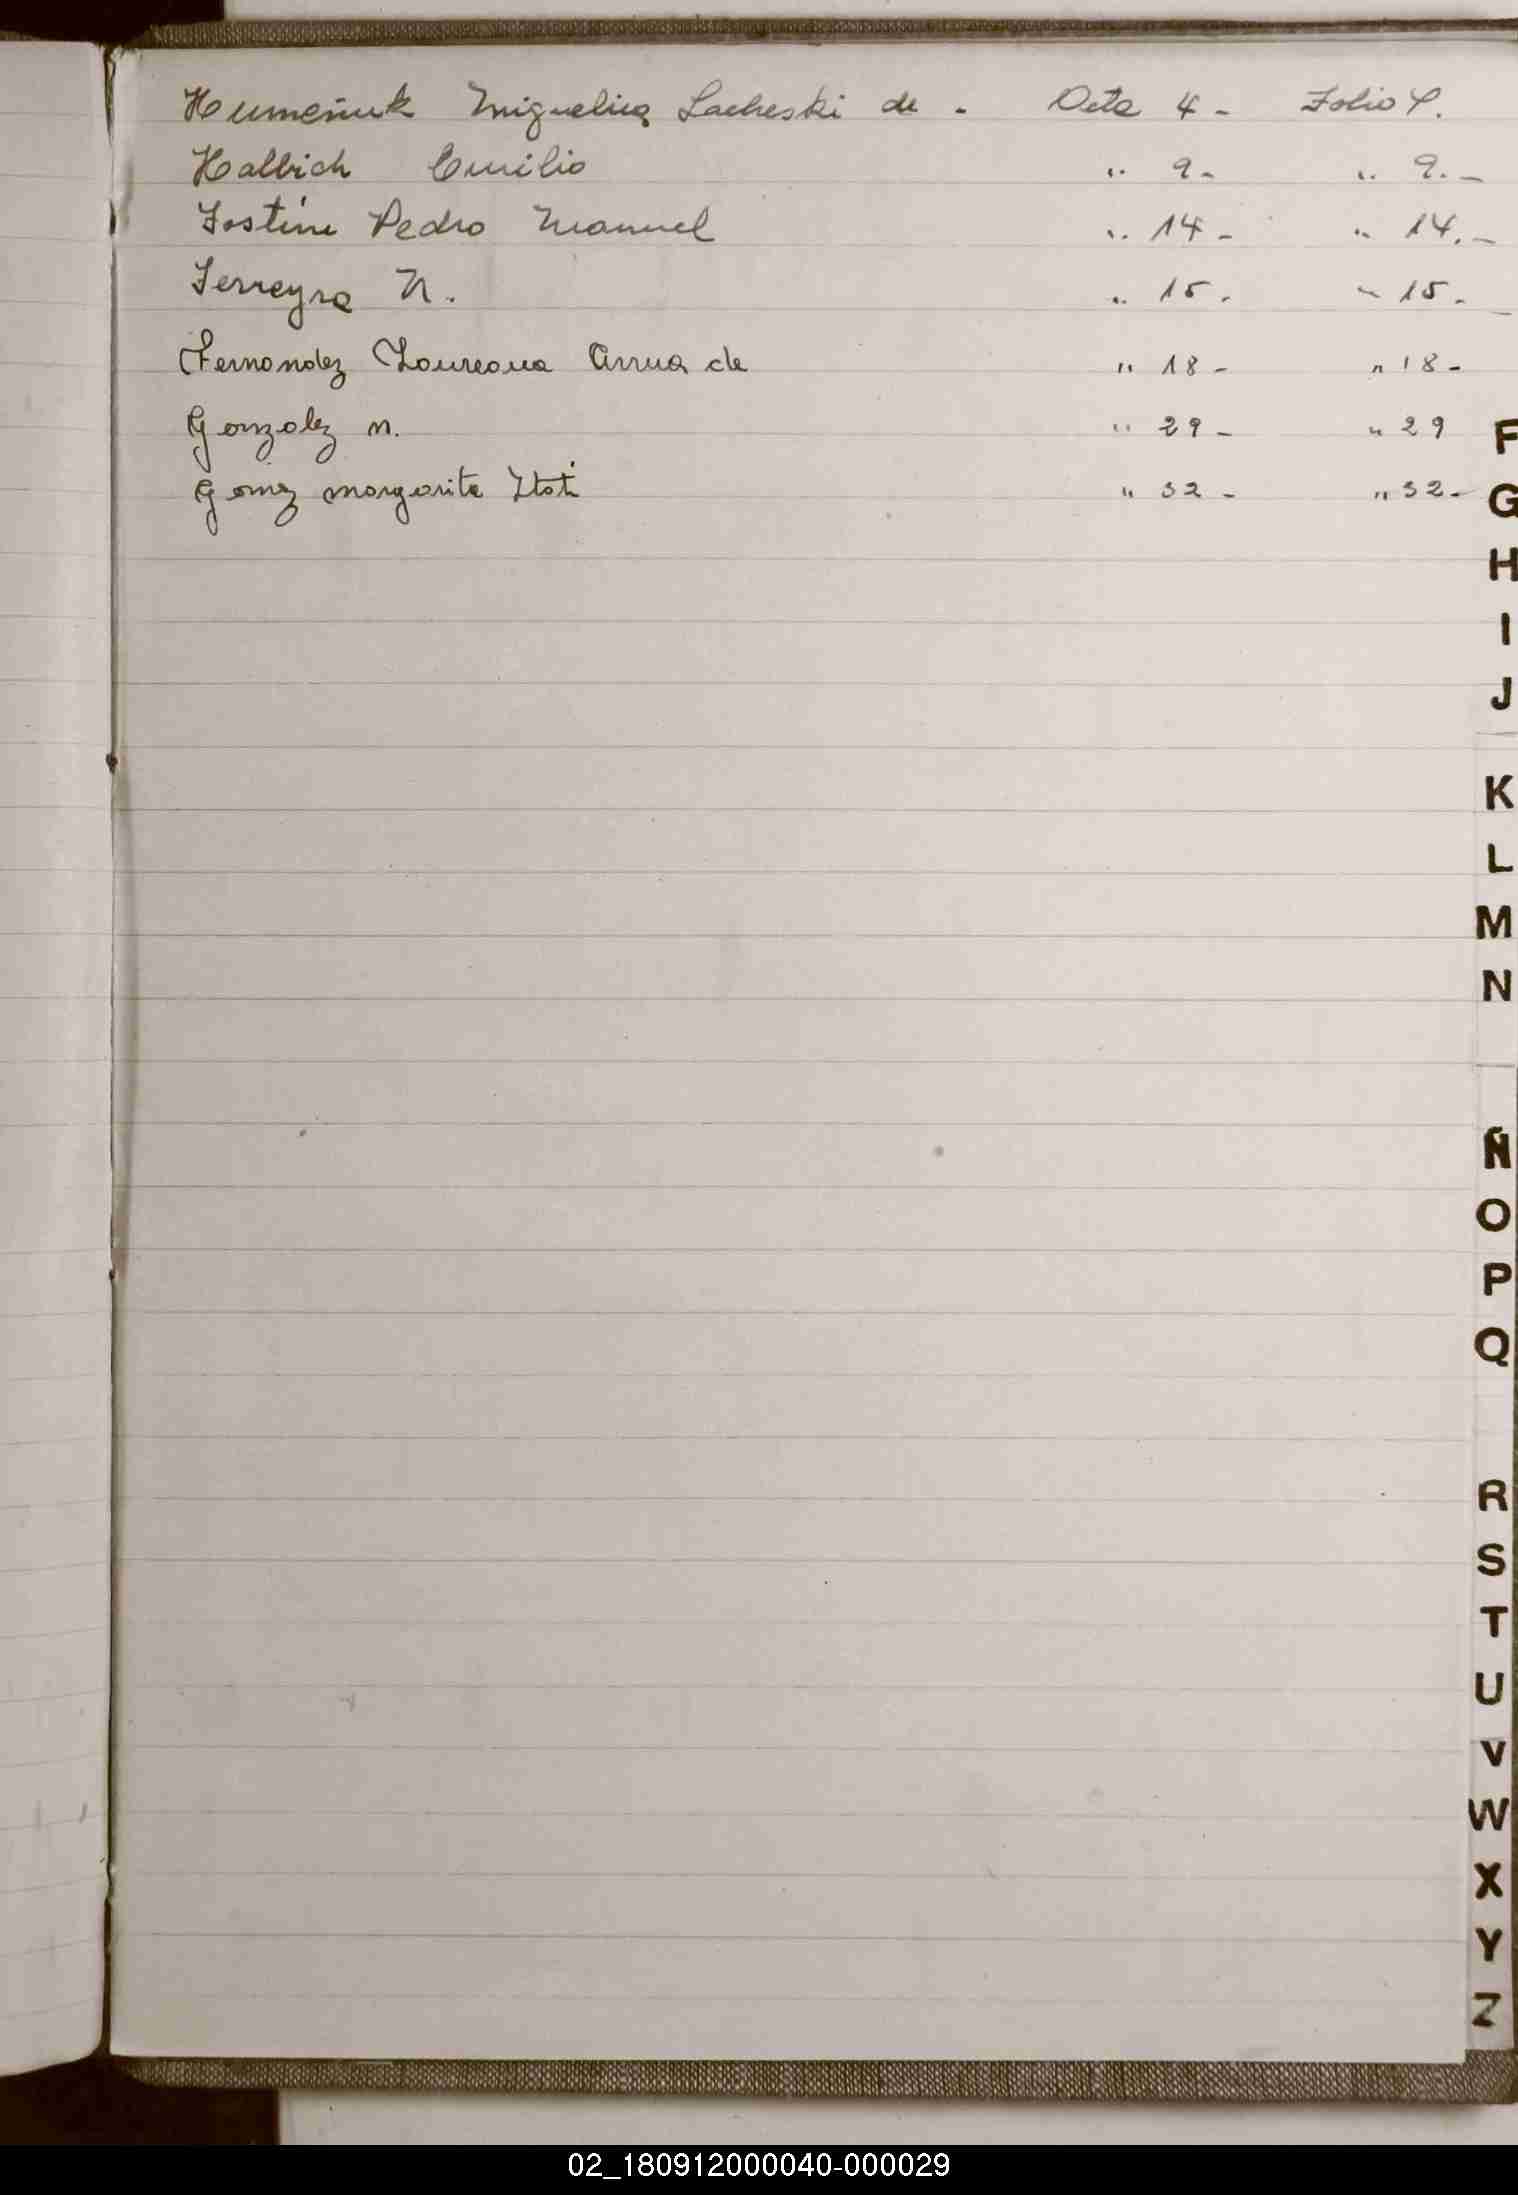 Humeñuk Miguelina Lacheski de - Acta 4 - Folio 4.
Halbich Emilio " 9 - " 9. -
Fostini Pedro Manuel " 14 - " 14. -
Ferreyra N. " 15 - " 15 -
Fernandez Laureana Arrua de " 18 - " 18 -
Gonzalez N. " 29 - " 29
Gomez Margarita Itatí " 32 - " 32 -
F
G
H
I
J
K
L
M
N
Ñ
O
P
Q
R
S
T
U
V
W
X
Y
Z
02_180912000040-000029